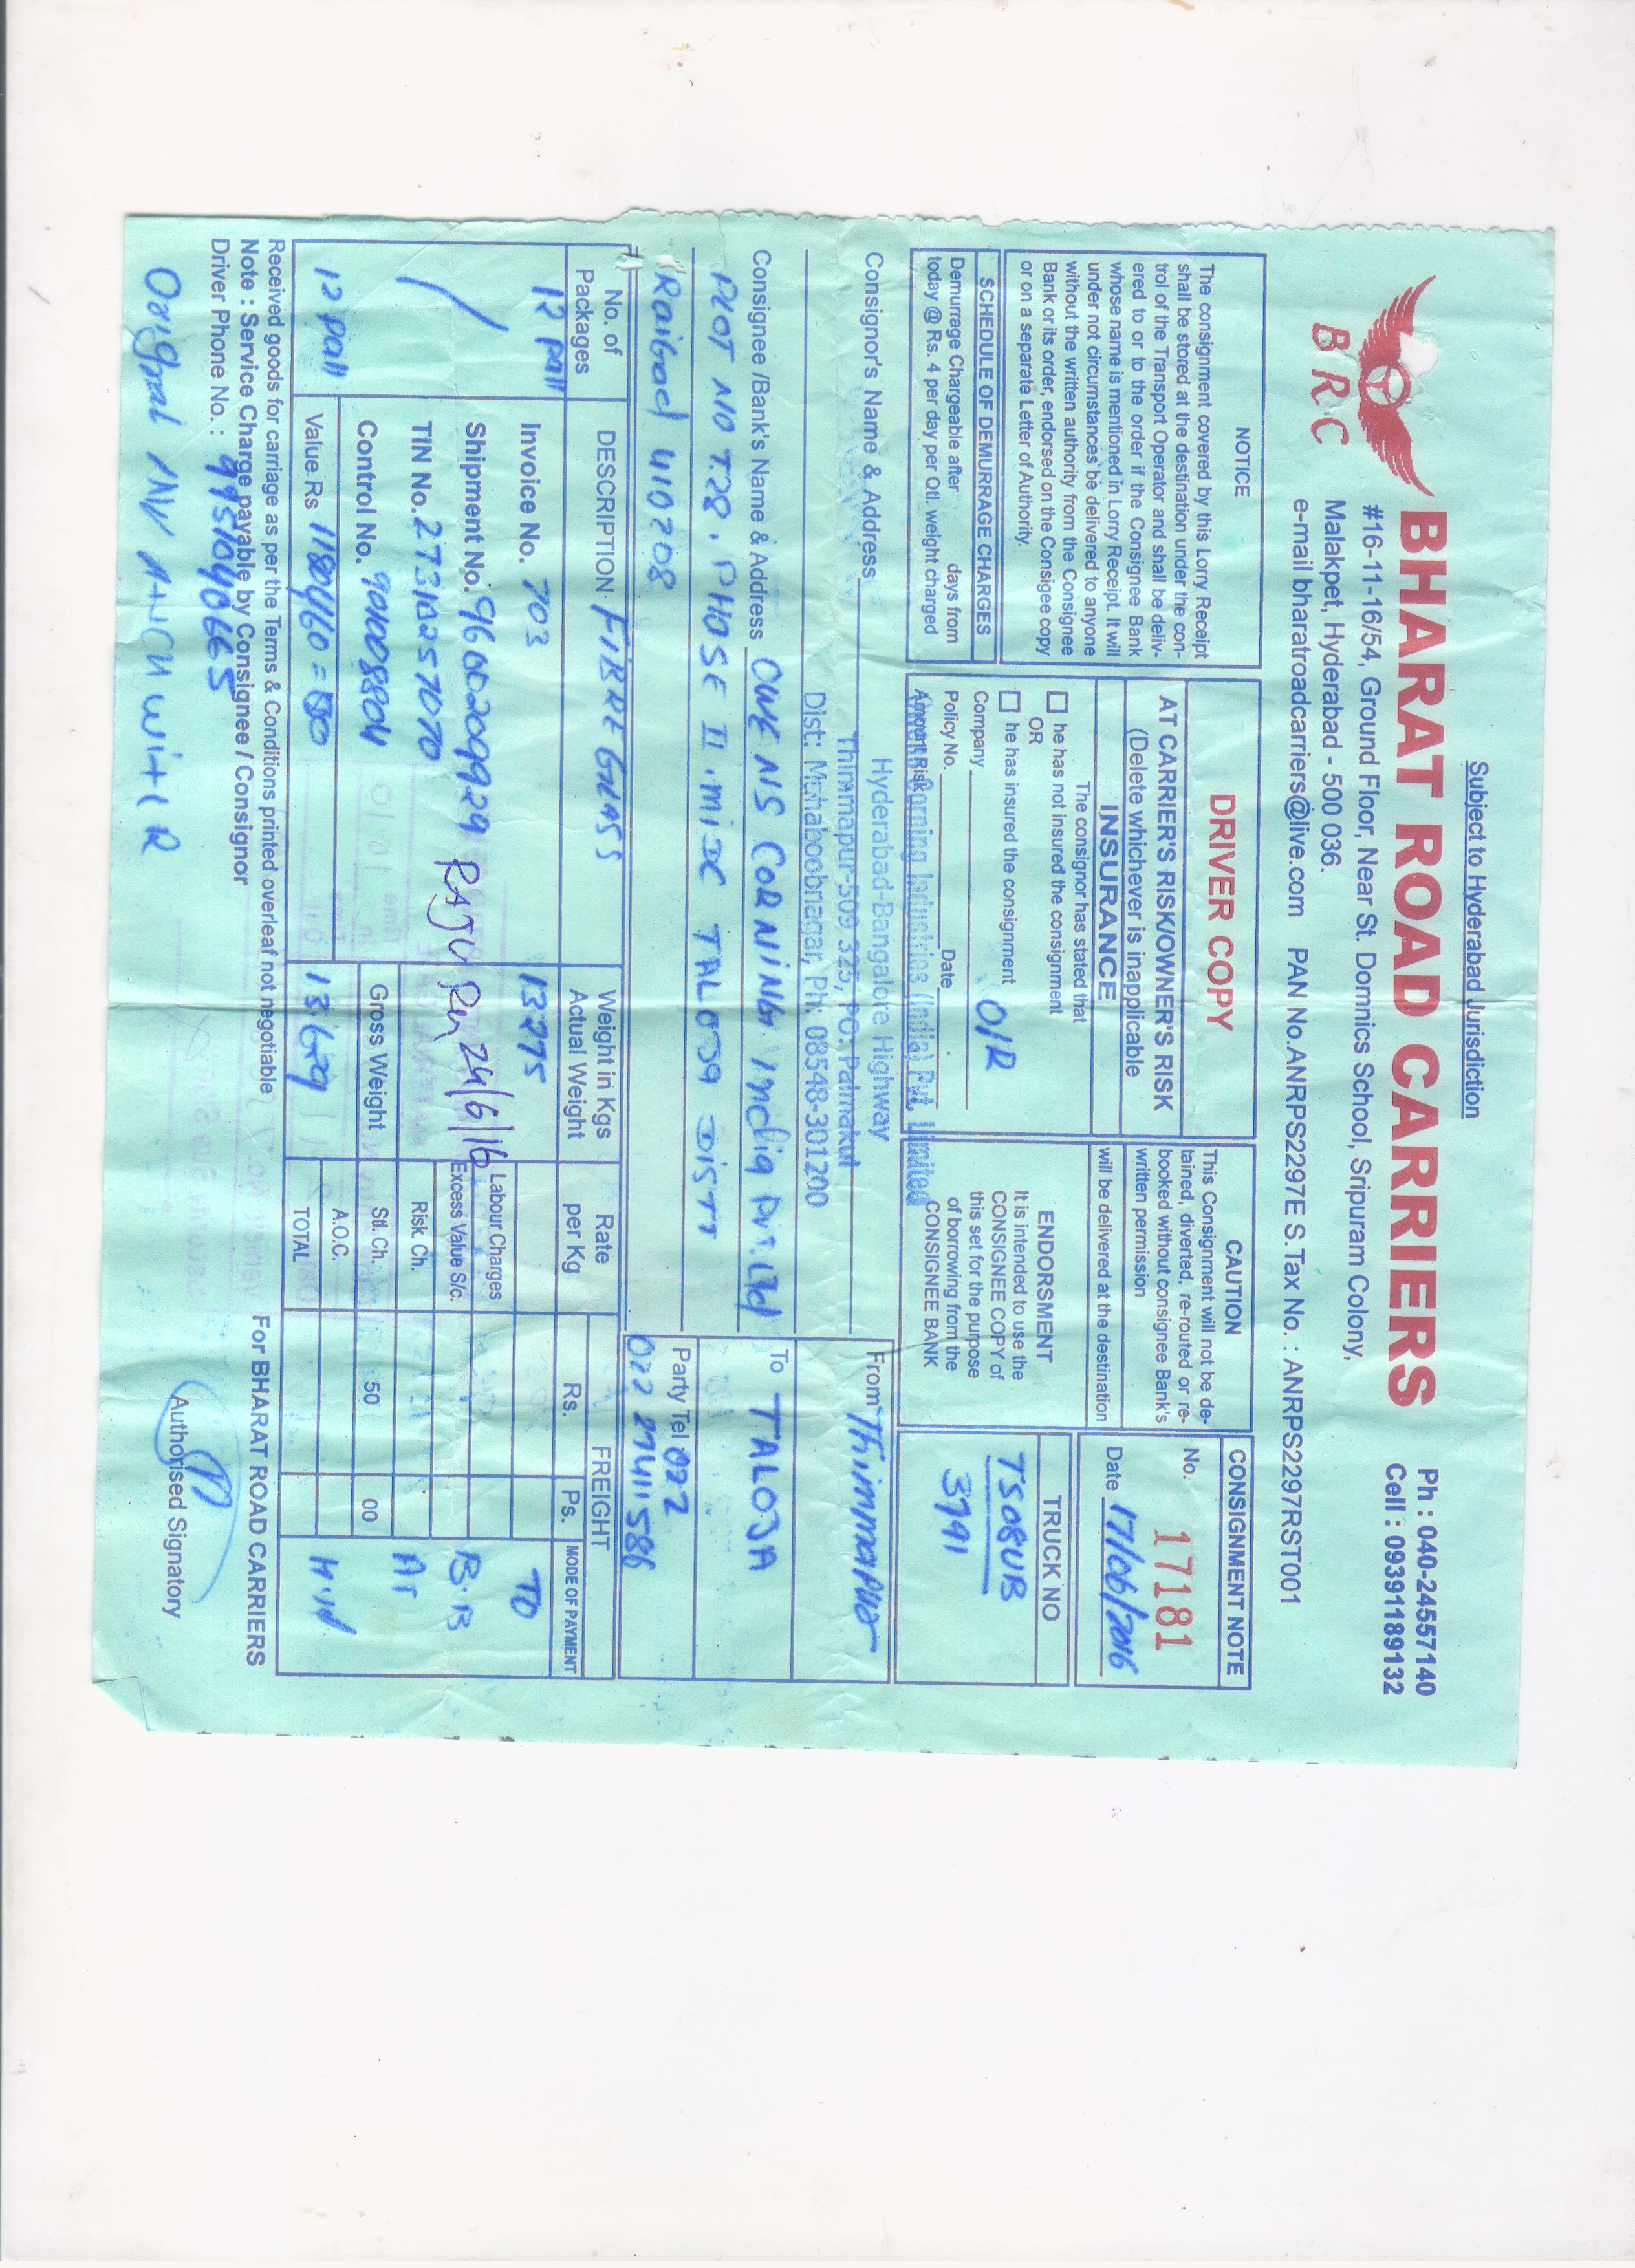 Subject to Hyderabad Jurisdiction
BHARAT ROAD CARRIERS
Ph : 040-24557140
Cell : 09391189132
B R C
#16-11-16/54, Ground Floor, Near St. Domnics School, Sripuram Colony,
Malakpet, Hyderabad - 500 036.
e-mail bharatroadcarriers@live.com PAN No.ANRPS2297E S.Tax No. : ANRPS2297RST001
NOTICE
The consignment covered by this Lorry Receipt
shall be stored at the destination under the con-
trol of the Transport Operator and shall be deliv-
ered to or to the order if the Consignee Bank
whose name is mentioned in Lorry Receipt. It will
under not circumstances be delivered to anyone
without the written authority from the Consignee
Bank or its order, endorsed on the Consigee copy
or on a separate Letter of Authority.
SCHEDULE OF DEMURRAGE CHARGES
Demurrage Chargeable after days from
today @ Rs. 4 per day per Qtl. weight charged
DRIVER COPY
AT CARRIER'S RISK/OWNER'S RISK
(Delete whichever is inapplicable
INSURANCE
The consignor has stated that
he has not insured the consignment
OR
he has insured the consignment
O/R
Company
Policy No. Date
Amount Risk
CAUTION
This Consignment will not be de-
tained, diverted, re-routed or re-
booked without consignee Bank's
written permission
will be delivered at the destination
ENDORSMENT
It is intended to use the
CONSIGNEE COPY of
this set for the purpose
of borrowing from the
CONSIGNEE BANK
CONSIGNMENT NOTE
No. 17181
Date 17/06/2016
TRUCK NO
TS08UB
3791
Owens Corning Industries (India) Pvt. Limited
Consignor's Name & Address Hyderabad-Bangalore Highway
Thimmapur-509 325, PO: Palmakul
Dist: Mahaboobnagar, Ph: 08548-301200
From Thimmapur
Consignee /Bank's Name & Address OWENS CORNING India Pvt. Ltd
PLOT NO T.28. PHOSE II . MIDC TALOJA DISTT
Raigad 410208
To TALOJA
Party Tel 022
022 27411586
No. of
Packages
DESCRIPTION FIBRE GLASS
Weight in Kgs
Actual Weight
Rate
per Kg
FREIGHT
Rs. Ps. MODE OF PAYMENT
12 pall
Invoice No. 703
13275
Shipment No. 9600209929
RAJU 24/6/16
TIN No. 27310257070
Control No. 901008804
12 pall
Value Rs 1180460 =
Gross Weight
13.629
Labour Charges
Excess Value S/c.
Risk. Ch.
Stl. Ch. 50 00
A.O.C.
TOTAL
TO
B.B
AT
Hyd
Received goods for carriage as per the Terms & Conditions printed overleaf not negotiable
Note : Service Charge payable by Consignee / Consignor
Driver Phone No. : 9951040665
For BHARAT ROAD CARRIERS
Authorised Signatory
Original INV